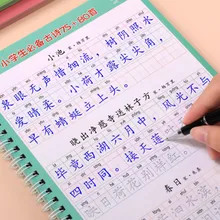 小学生必备古诗75+80首
小池
泉眼无声惜细流，树阴照水
爱晴柔。小荷才露尖尖角，
早有蜻蜓立上头。
晓出净慈寺送林子方
毕竟西湖六月中，风光不与
四时同。接天莲
春日